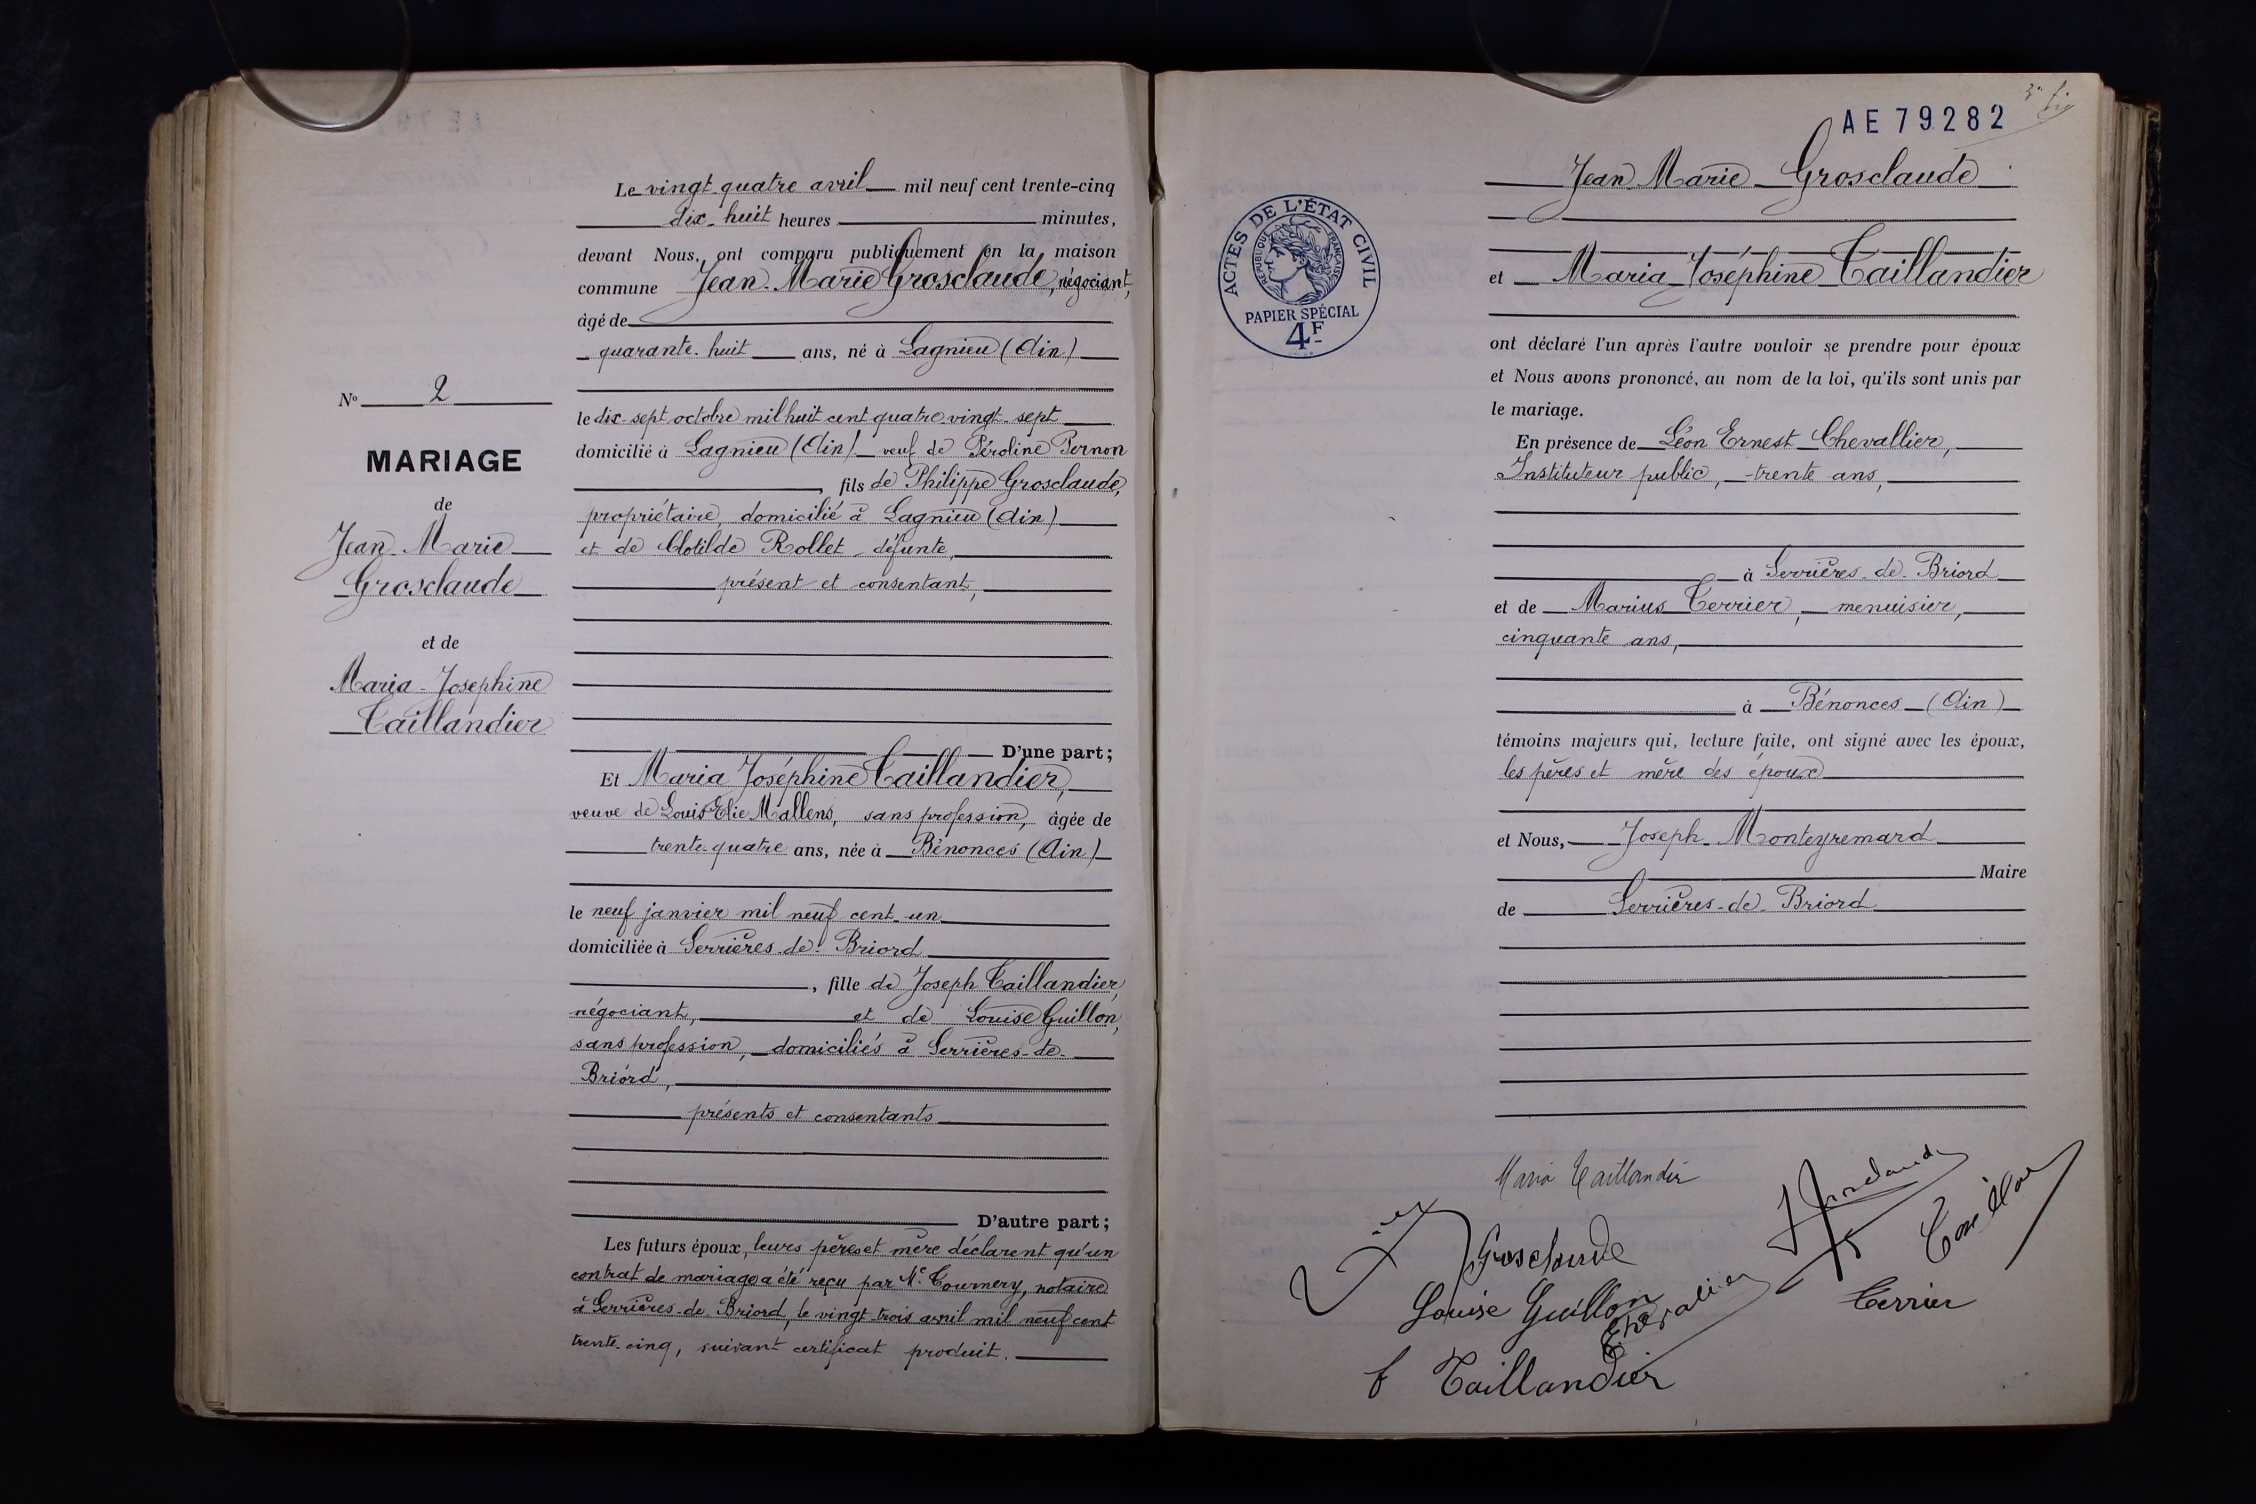 Le vingt-quatre avril mil neuf cent trente-cinq
dix-huit heures minutes,
devant Nous, ont comparu publiquement en la maison
commune Jean-Marie Grosclaude, négociant,
âgé de
quarante-huit ans, né à Lagnieu (Ain)
le dix-sept octobre mil huit cent quatre-vingt-sept
domicilié à Lagnieu (Ain) veuf de Péroline Pernon
, fils de Philippe Grosclaude,
propriétaire, domicilié à Lagnieu (Ain)
et de Clotilde Rollet défunte,
présent et consentant,
D'une part;
Et Maria Joséphine Taillandier,
veuve de Louis Elie Mallens, sans profession, âgée de
trente-quatre ans, née à Bénonces (Ain)
le neuf janvier mil neuf cent un
domiciliée à Serrières-de-Briord
, fille de Joseph Taillandier,
négociant, et de Louise Guillon,
sans profession, domiciliés à Serrières-de-
Briord,
présents et consentants
D'autre part;
Les futurs époux, leurs pères et mère déclarent qu'un
contrat de mariage a été reçu par Me Tournery, notaire
à Serrières-de-Briord, le vingt-trois avril mil neuf cent
trente-cinq, suivant certificat produit.
No 2
MARIAGE
de
Jean-Marie
Grosclaude
et de
Maria-Josephine
Taillandier
AE 79282
ACTES DE L'ÉTAT CIVIL
RÉPUBLIQUE FRANÇAISE
PAPIER SPÉCIAL
4F
Jean-Marie Grosclaude
et Maria Joséphine Taillandier
ont déclaré l'un après l'autre vouloir se prendre pour époux
et Nous avons prononcé, au nom de la loi, qu'ils sont unis par
le mariage.
En présence de Léon Ernest Chevallier,
Instituteur public, trente ans,
à Serrières-de-Briord
et de Marius Terrier, menuisier,
cinquante ans,
à Bénonces (Ain)
témoins majeurs qui, lecture faite, ont signé avec les époux,
les pères et mère des époux
et Nous, Joseph Monteyremard
Maire
de Serrières-de-Briord
Maria Taillandier
J Grosclaude
Grosclaude
Louise Guillon
Chevalier
Terrier
Taillandier